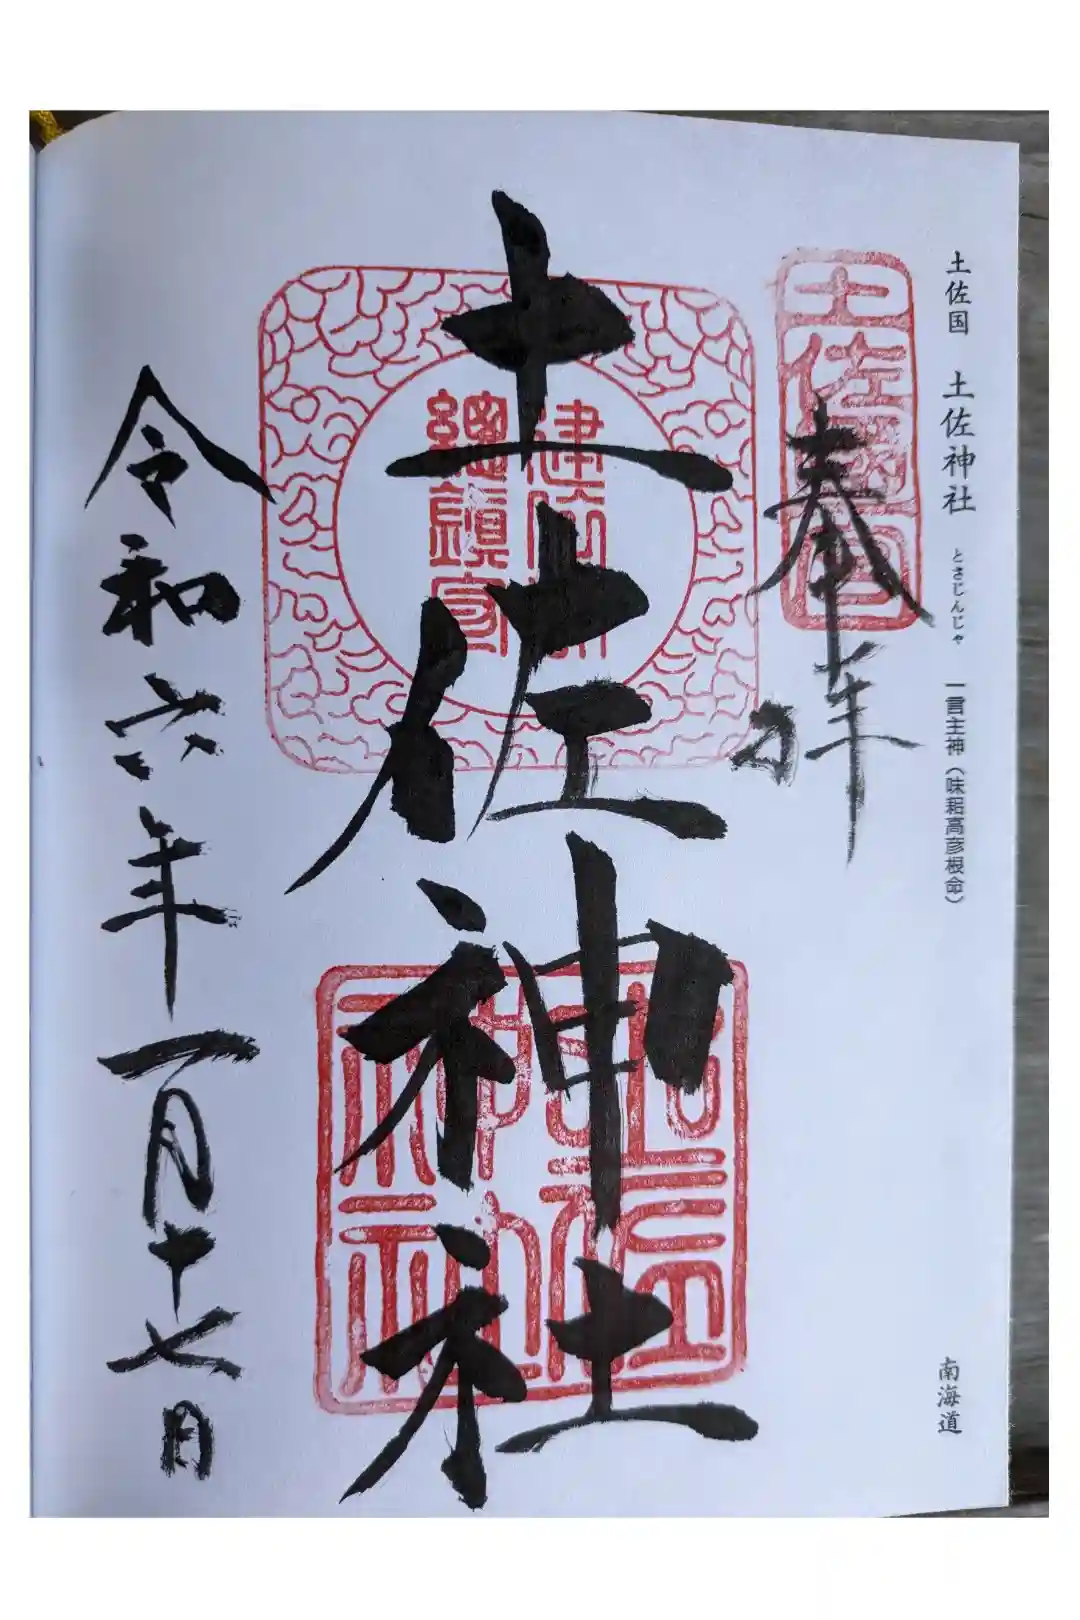 土佐国 土佐神社 とさじんじゃ 一言主神（味耜高彦根命） 南海道
奉拝
土佐神社
建依別
總鎮守
令和六年一月十七日